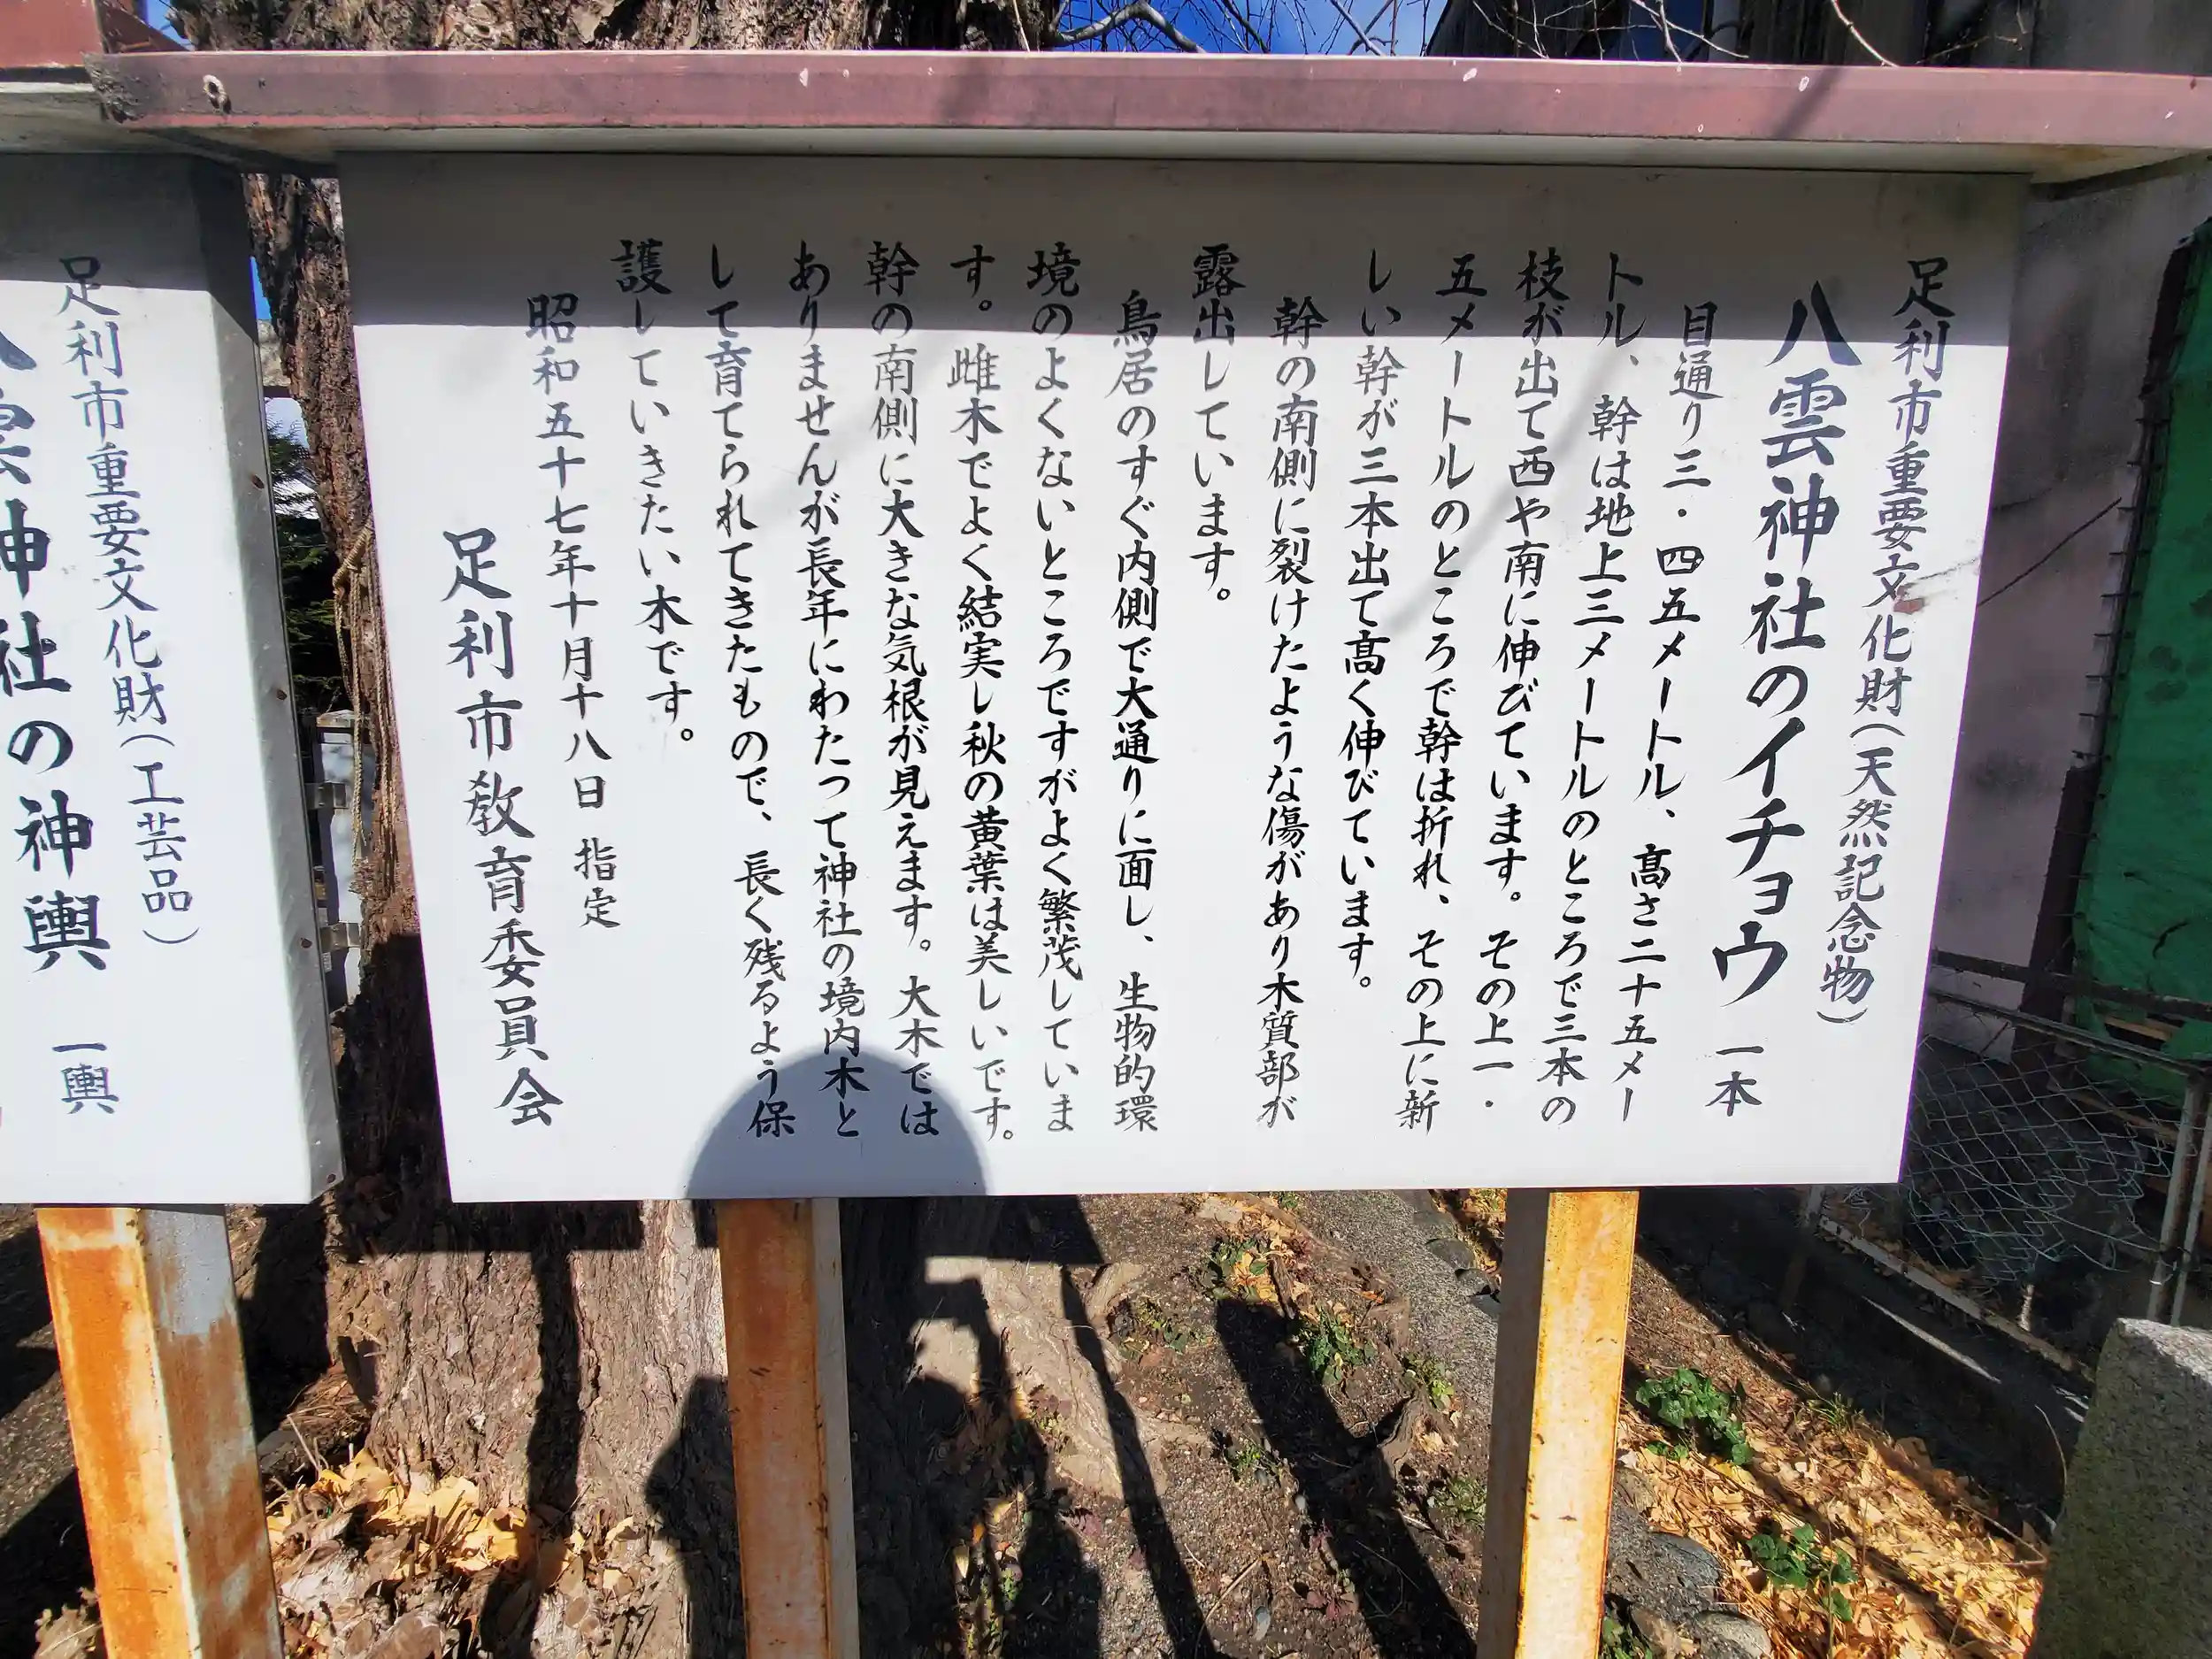 足利市重要文化財（天然記念物）
八雲神社のイチョウ 一本
目通り三・四五メートル、高さ二十五メー
トル、幹は地上三メートルのところで三本の
枝が出て西や南に伸びています。その上一・
五メートルのところで幹は折れ、その上に新
しい幹が三本出て高く伸びています。
幹の南側に裂けたような傷があり木質部が
露出しています。
鳥居のすぐ内側で大通りに面し、生物的環
境のよくないところですがよく繁茂していま
す。雌木でよく結実し秋の黄葉は美しいです。
幹の南側に大きな気根が見えます。大木では
ありませんが長年にわたって神社の境内木と
して育てられてきたもので、長く残るよう保
護していきたい木です。
昭和五十七年十月十八日 指定
足利市教育委員会
足利市重要文化財（工芸品）
八雲神社の神輿 一輿